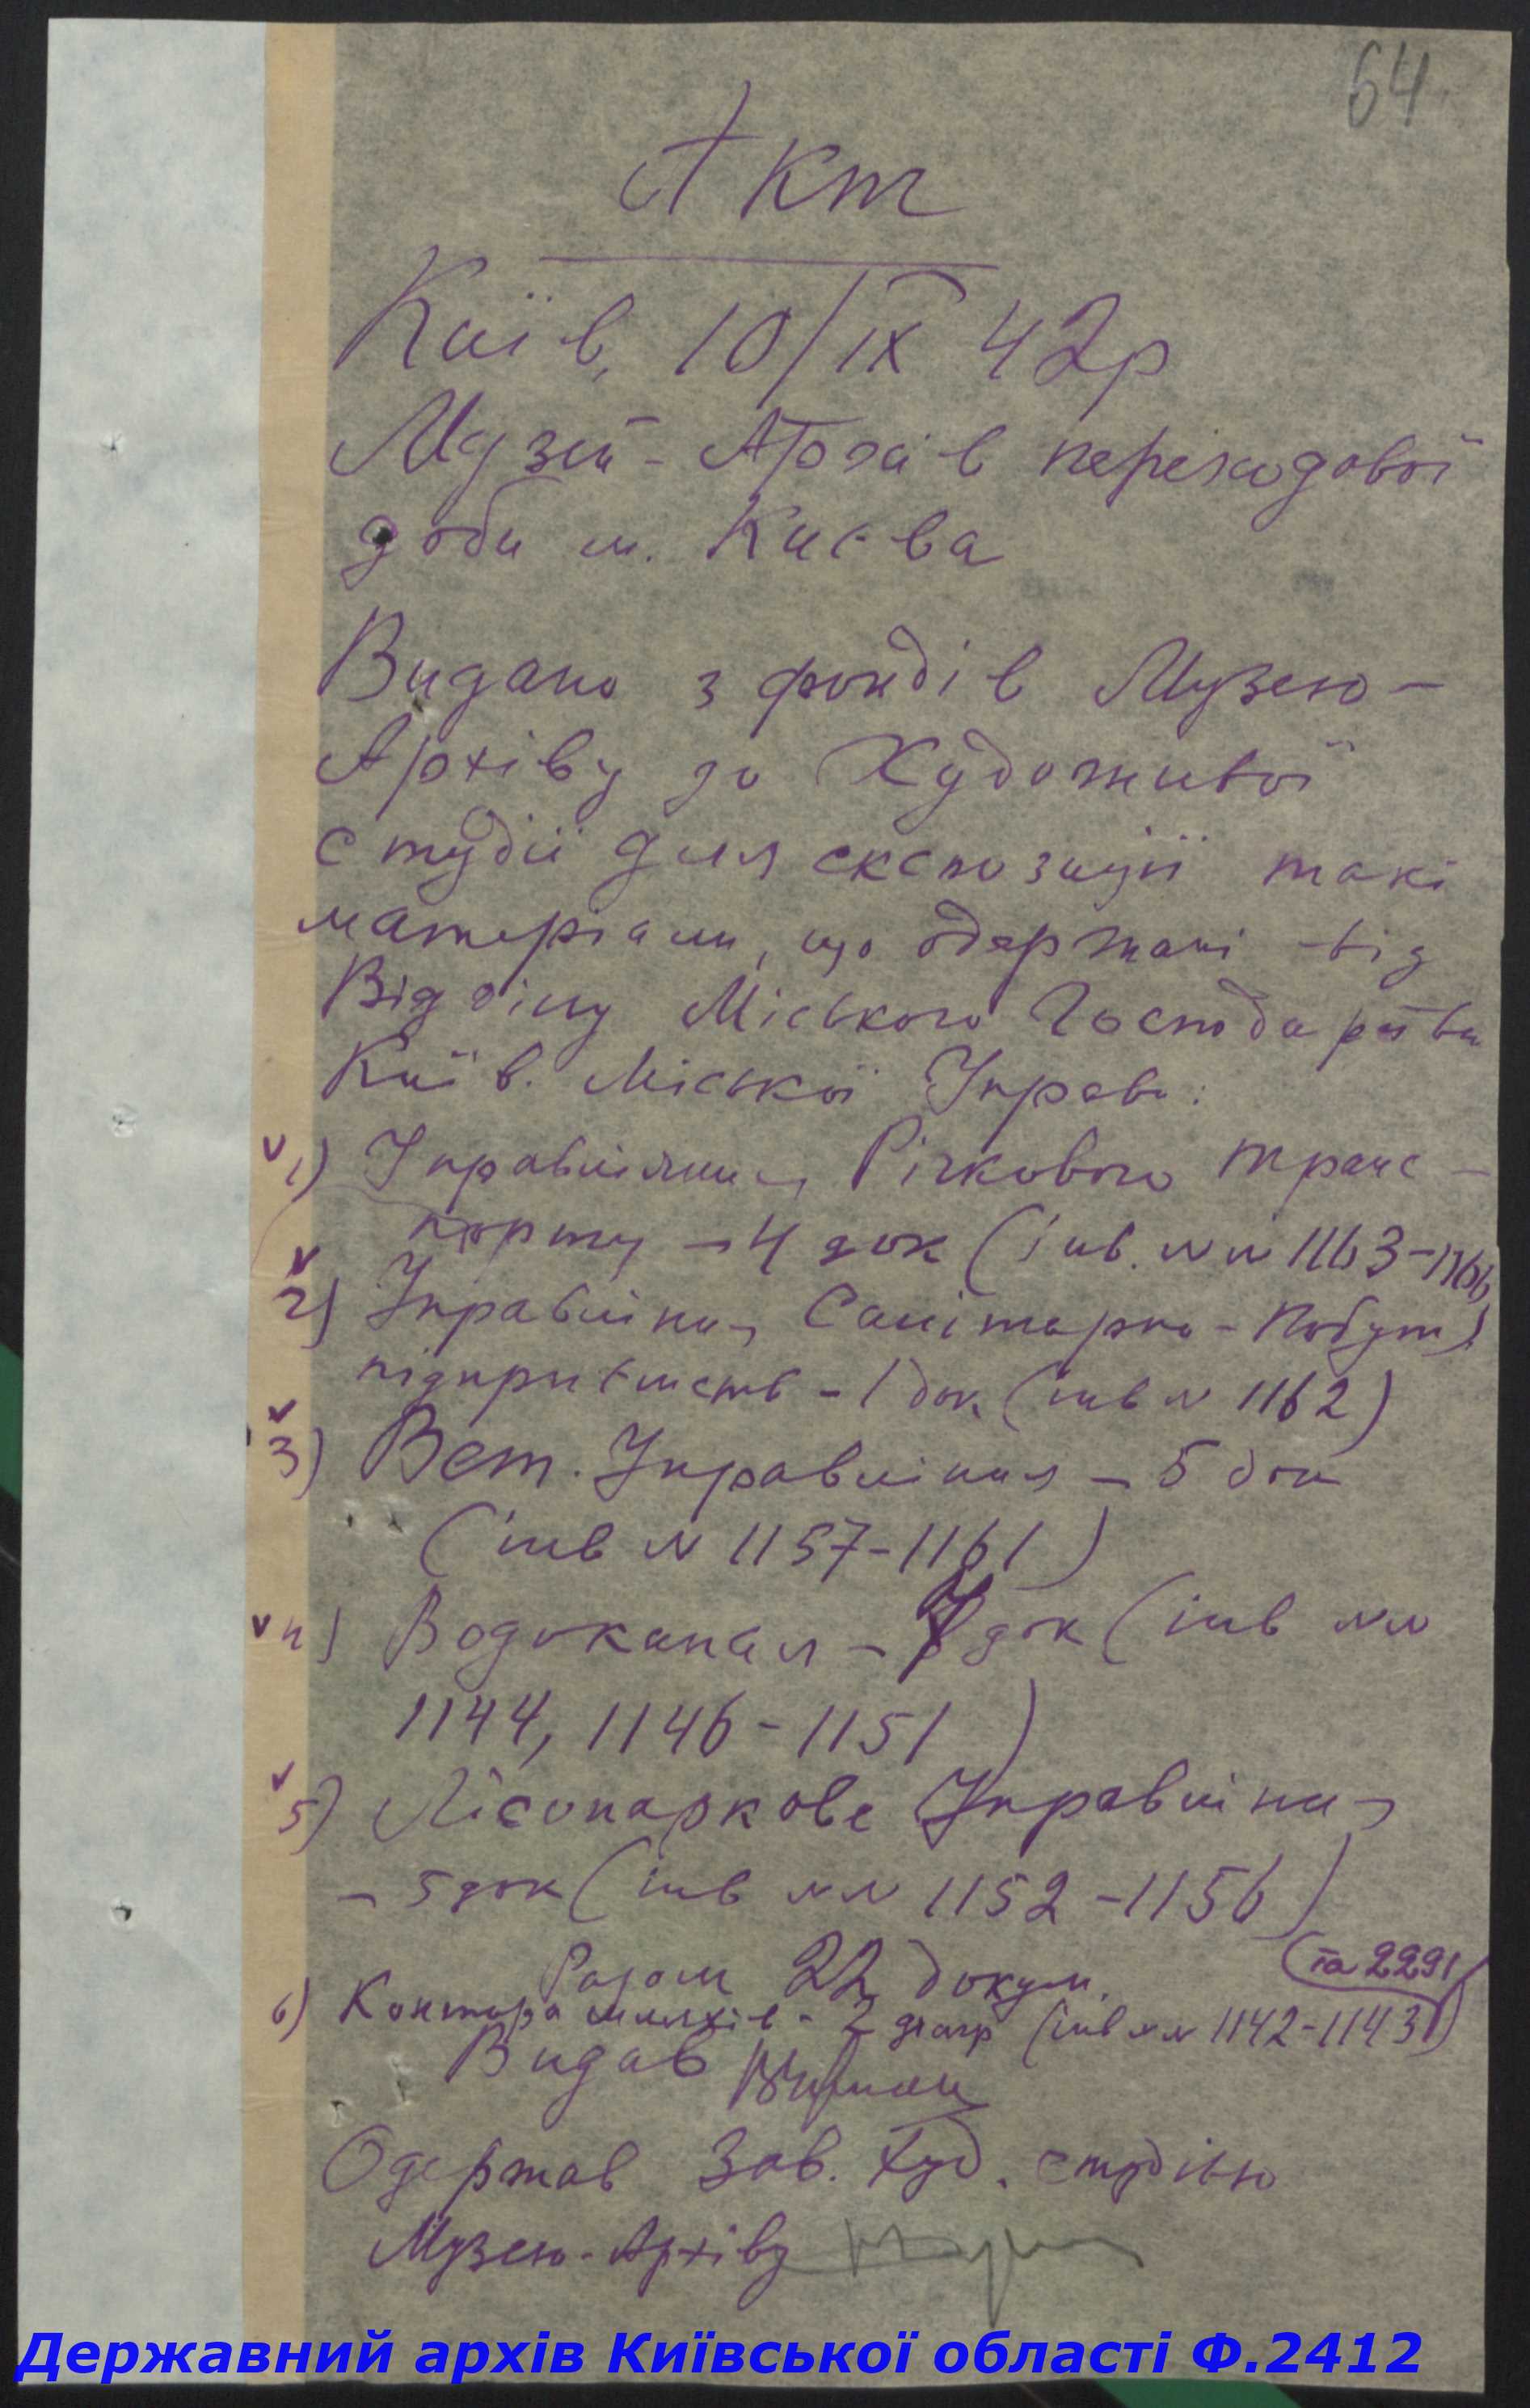 64
Акт
Київ, 10/IX 42р
Музей-Архів переходової
доби м. Києва
Видано з фондів Музею-
Архіву до Художньої
студії для експозиції такі
матеріали, що одержані від
Відділу Міського Господарства
Київ. Міської Управи:
v 1) Управління Річкового транс-
порту – 4 док (інв. №№ 1163-1166)
v 2) Управління Санітарно-Побут.
підприємств – 1 док (інв № 1162)
v 3) Вет. Управління – 5 док
(інв № 1157-1161)
v 4) Водоканал – 7 док (інв №№
1144, 1146-1151)
v 5) Лісопаркове Управління
– 5 док (інв №№ 1152-1156)
Разом 22 докум.
(та 2291)
6) Контора шляхів - 2 (інв №№ 1142-1143)
Видав
Одержав Зав. Худ. студією
Музею-Архіву
Державний архів Київської області Ф.2412